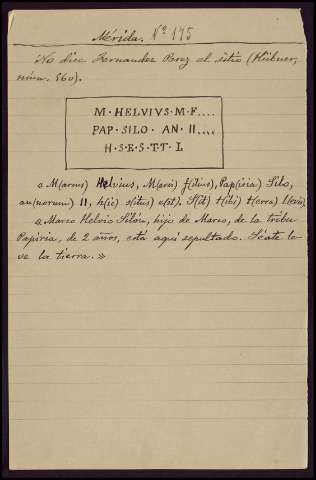 Mérida. Nº 175
No dice Fernandez Perez el sitio (Hübner,
núm. 560).
M · HELVIVS · M · F....
PAP · SILO · AN · II....
H · S · E · S · T · T · L
« M(arcus) Helvius, M(arci) f(ilius), Pap(iria) Silo,
an(norum) II, h(ic) s(itus) e(st). S(it) t(ibi) t(erra) l(evis).
« Marco Helvio Silón, hijo de Marco, de la tribu
Papiria, de 2 años, está aquí sepultado. Séate le-
ve la tierra. »